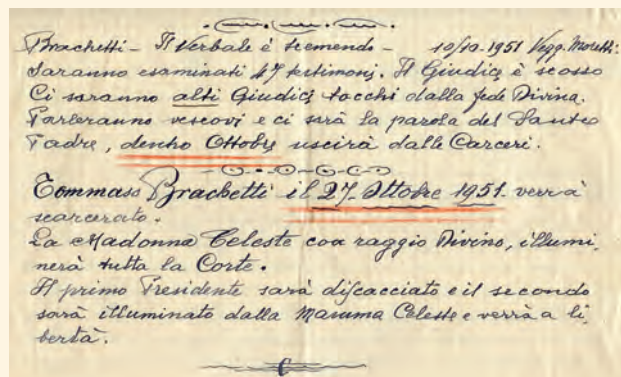 Brachetti - Il Verbale è tremendo - 10/10-1951 Vegg. Moretti:
Saranno esaminati 47 testimonj. Il Giudice è scosso
Ci saranno alti Giudici tocchi dalla fede Divina.
Parleranno vescovi e ci sarà la parola del Santo
Padre, dentro Ottobre uscirà dalle Carceri.
Tommaso Brachetti il 27. Ottobre 1951. verrà
scarcerato.
La Madonna Celeste con raggio Divino, illumi,
nerà tutta la Corte.
Il primo Presidente sarà discacciato e il secondo
sarà illuminato dalla Mamma Celeste e verrà a li,
bertà.